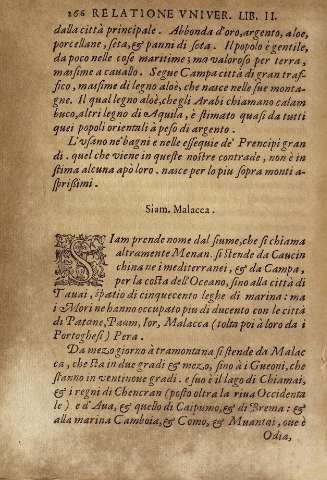 266 RELATIONE VNIVER. LIB. II.
dalla città principale. Abbonda d'oro, argento, aloe,
porcellane, seta, & panni di seta. Il popolo è gentile,
da poco nelle cose maritime; ma valoroso per terra,
massime a cauallo. Segue Campa città di gran traf-
fico, massime di legno aloè, che nasce nelle sue monta-
gne. Il qual legno aloè, che gli Arabi chiamano calam
buco, altri legno di Aquila, è stimato quasi da tutti
quei popoli orientali à peso di argento.
L'vsano ne' bagni e nelle essequie de' Prencipi gran
di. quel che viene in queste nostre contrade, non è in
stima alcuna apo loro. nasce per lo piu sopra monti a-
sprissimi.
Siam. Malacca.
SIam prende nome dal fiume, che si chiama
altramente Menan. si stende da Caucin
china ne i mediterranei, & da Campa,
per la costa dell'Oceano, sino alla città di
Tauai, spatio di cinquecento leghe di marina: ma
i Mori ne hanno occupato piu di ducento con le città
di Patane, Paam, Ior, Malacca (tolta poi à loro da i
Portoghesi) Pera.
Da mezo giorno à tramontana si stende da Malac
ca, che sta in due gradi & mezo, sino à i Gueoni, che
stanno in ventinoue gradi. e suo è il lago di Chiamai,
& i regni di Chencran (posto oltra la riua Occidenta
le) e d'Aua, & quello di Caipumo, & di Brema: &
alla marina Camboia, & Como, & Muantai, oue è
Odia,